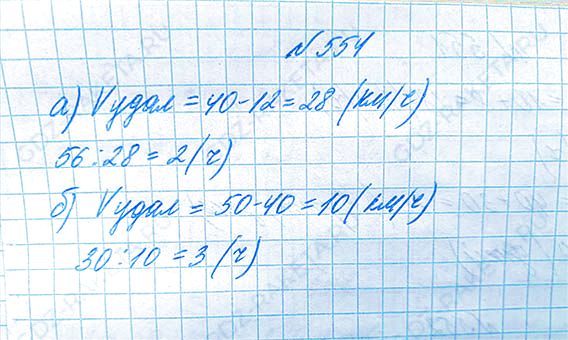 №554
а) Vудал = 40-12 = 28 (км/ч)
56:28 = 2 (ч)
б) Vудал = 50-40 = 10 (км/ч)
30:10 = 3 (ч)